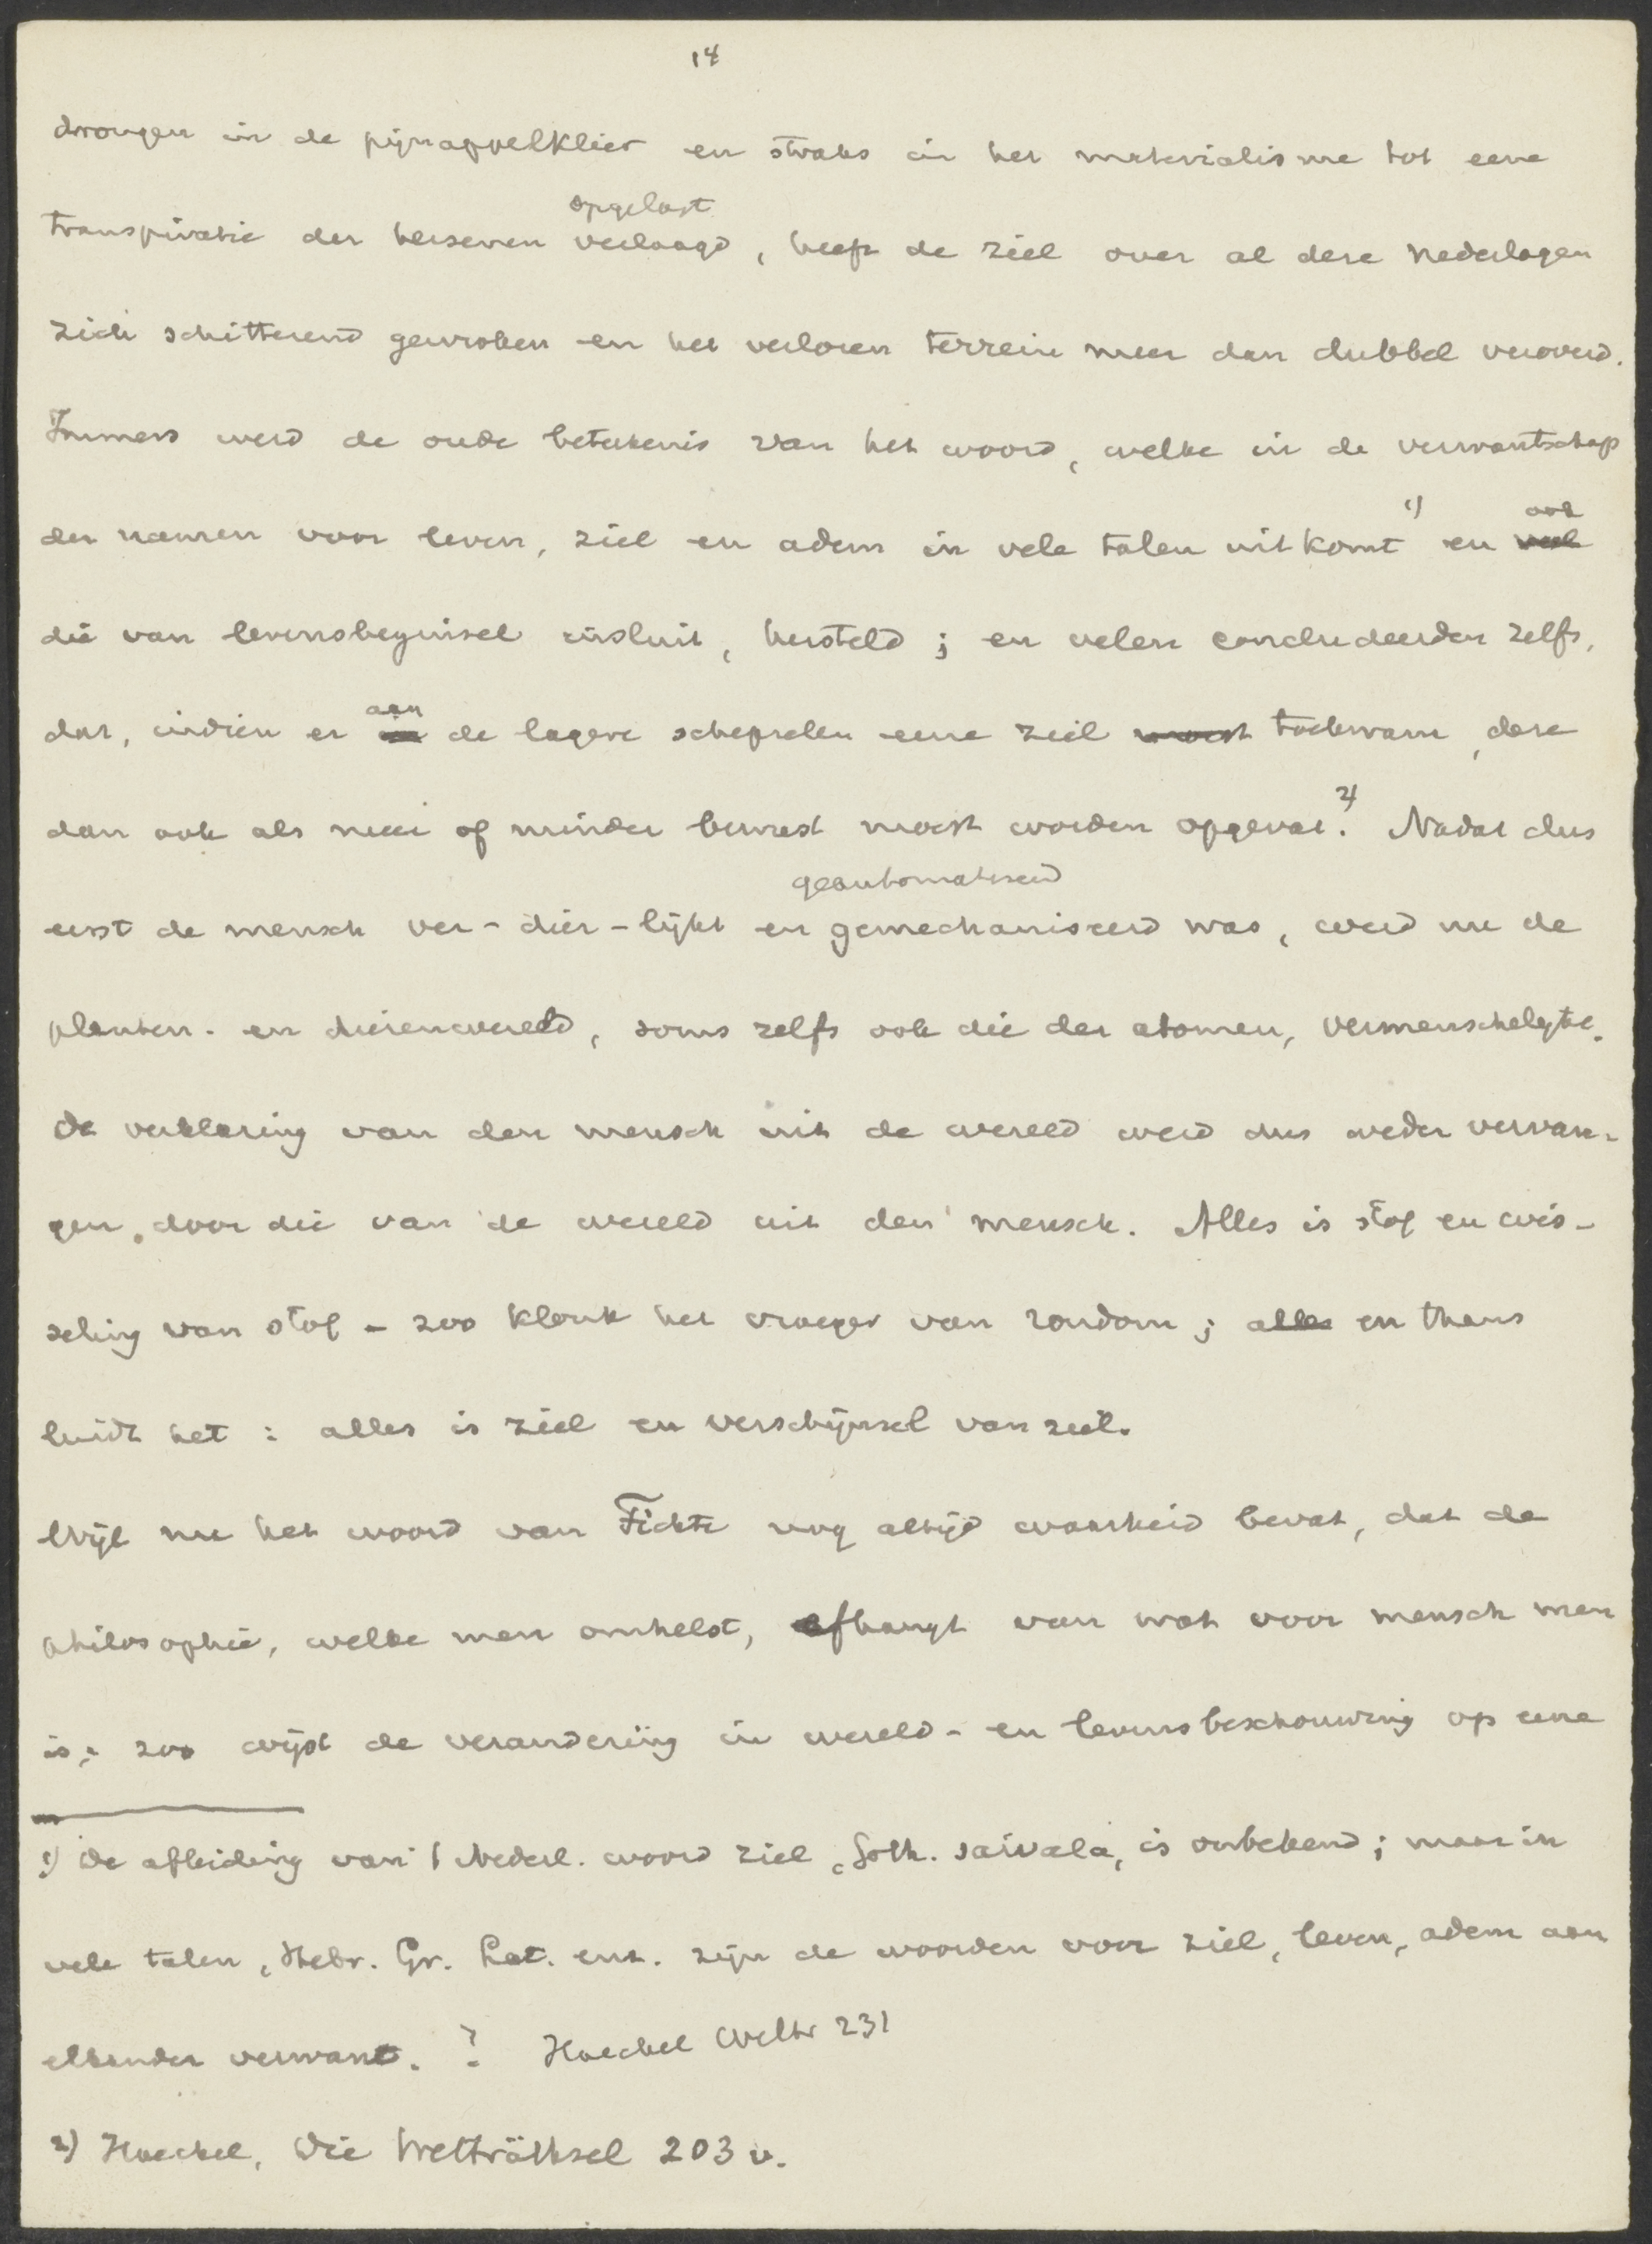 14
drongen in de pijnappelklier en straks in het materialisme tot eene
opgelost
transpiratie der hersenen verlaagd, heeft de ziel over al deze nederlagen
zich schitterend gewroken en het verloren terrein meer dan dubbel veroverd.
Immers werd de oude beteekenis van het woord, welke in de verwantschap
der namen voor leven, ziel en adem in vele talen uitkomt 1) en ook
die van levensbeginsel insluit, hersteld; en velen concludeerden zelfs,
dat, indien er aan de lagere schepselen eene ziel moest toekwam, deze
dan ook als meer of minder bewust moest worden opgevat. 2) Nadat dus
geautomatiseerd
eerst de mensch ver-dier-lijkt en gemechaniseerd was, werd nu de
planten- en dierenwereld, soms zelfs ook die der atomen, vermenschelijkt.
De verklaring van den mensch uit de wereld werd dus weder vervan-
gen door die van de wereld uit den mensch. Alles is stof en wis-
seling van stof - zoo klonk het vroeger van rondom; alles en thans
luidt het: alles is ziel en verschijnsel van ziel.
Wijl nu het woord van Fichte nog altijd waarheid bevat, dat de
philosophie, welke men omhelst, afhangt van wat voor mensch men
is; zoo wijst de verandering in wereld- en levensbeschouwing op eene
1) De afleiding van 't Nederl. woord ziel, Goth. saivala, is onbekend; maar in
vele talen, Hebr. Gr. Lat. enz. zijn de woorden voor ziel, leven, adem aan
elkander verwant. ? Haeckel Weltr 231
2) Haeckel, Die Welträthsel 203 v.